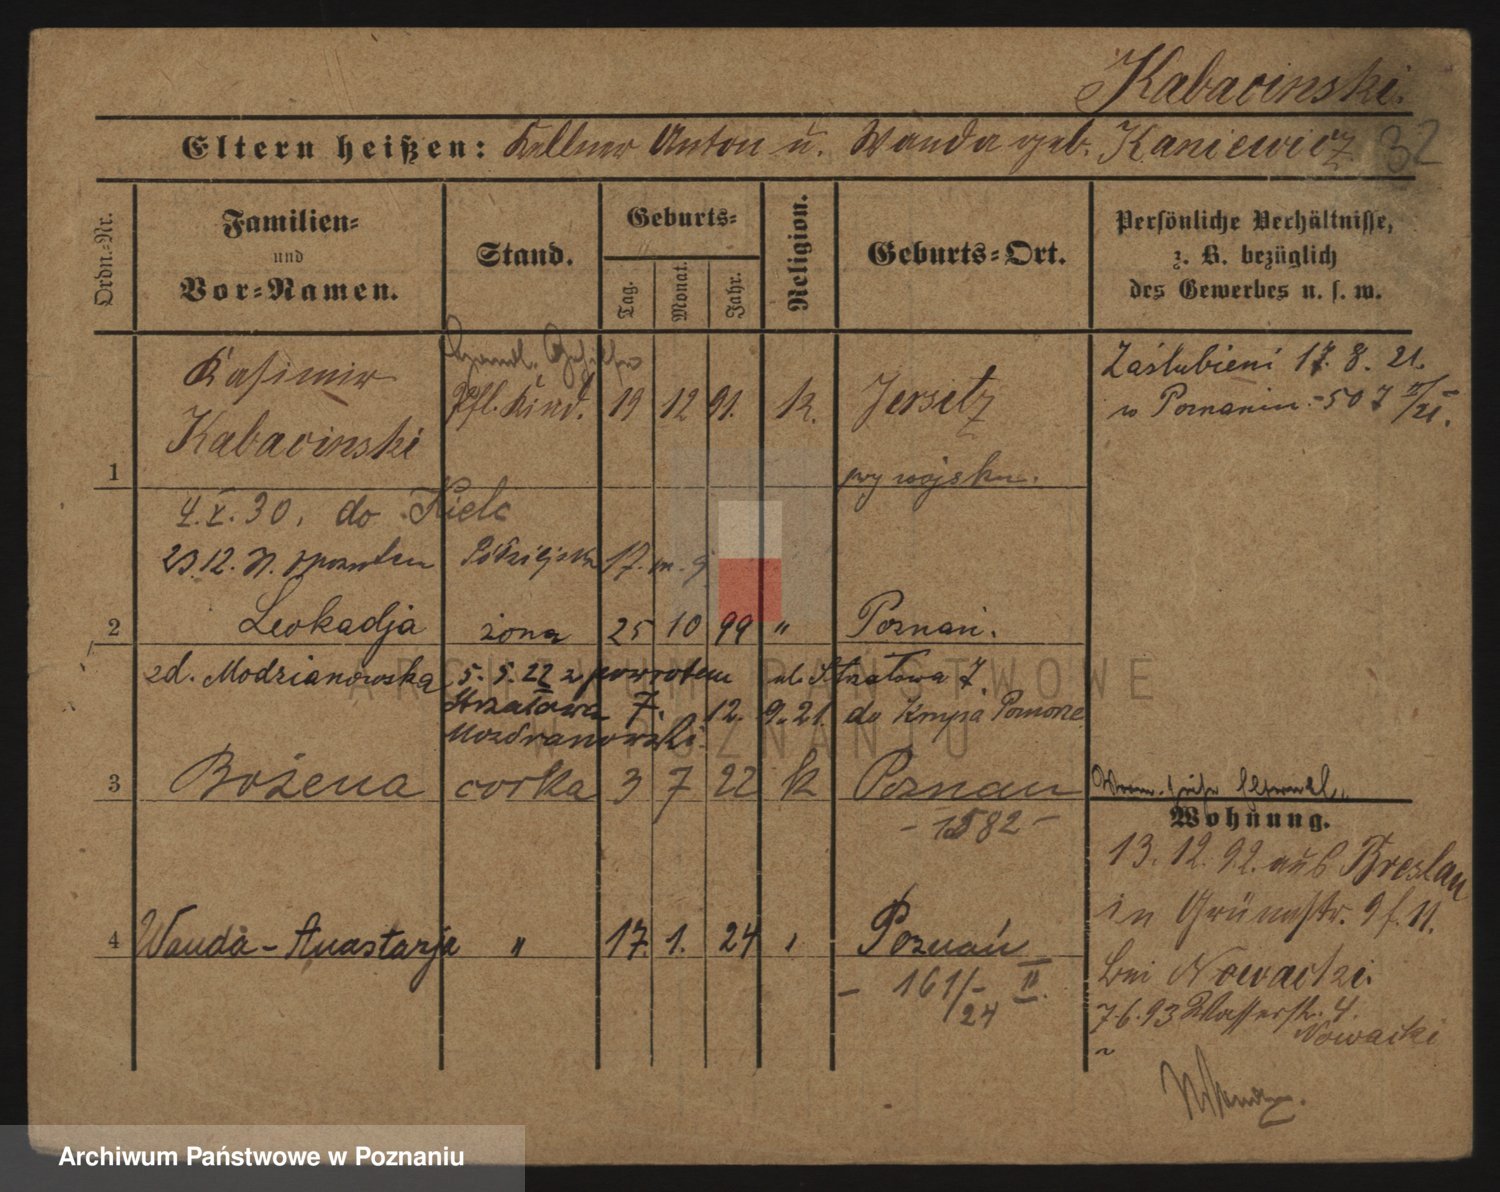 Kabacinski.
Eltern heißen: Kellner Anton u. Wanda geb. Kaniewicz 32
Ordn.-Nr.
Familien-
und
Vor-Namen.
Stand.
Geburts-
Tag.
Monat.
Jahr.
Religion.
Geburts-Ort.
Persönliche Verhältnisse,
z. B. bezüglich
des Gewerbes u. s. w.
Kasimir
Pfl. Kind. 19 12 91. k. Jersitz
Kabacinski
1
przy wojsku.
Zaślubieni 17. 8. 21.
w Poznaniu. -507
4. X. 30. do Kielc
29.12. 17. m. 9
2 Leokadja żona 25 10 99 " Poznań.
zd. Modzianowska 5. 5. 22 z powrotem ul. Strzałowa 7.
Strzałowa 7. 12. 9. 21. do Pomorze
Mozdranowski
3 Bożena corka 3 7 22 k Poznań
- 1582 -
4 Wanda - Anastazja " 17. 1. 24 Poznań
- 161/24 II.
Wohnung.
13. 12. 92. aus Breslau
in Grünestr. 9 f. 11.
bei Nowacki.
7. 6. 93 Wasserstr. 4.
Nowacki
ARCHIWUM PAŃSTWOWE
W POZNANIU
Archiwum Państwowe w Poznaniu